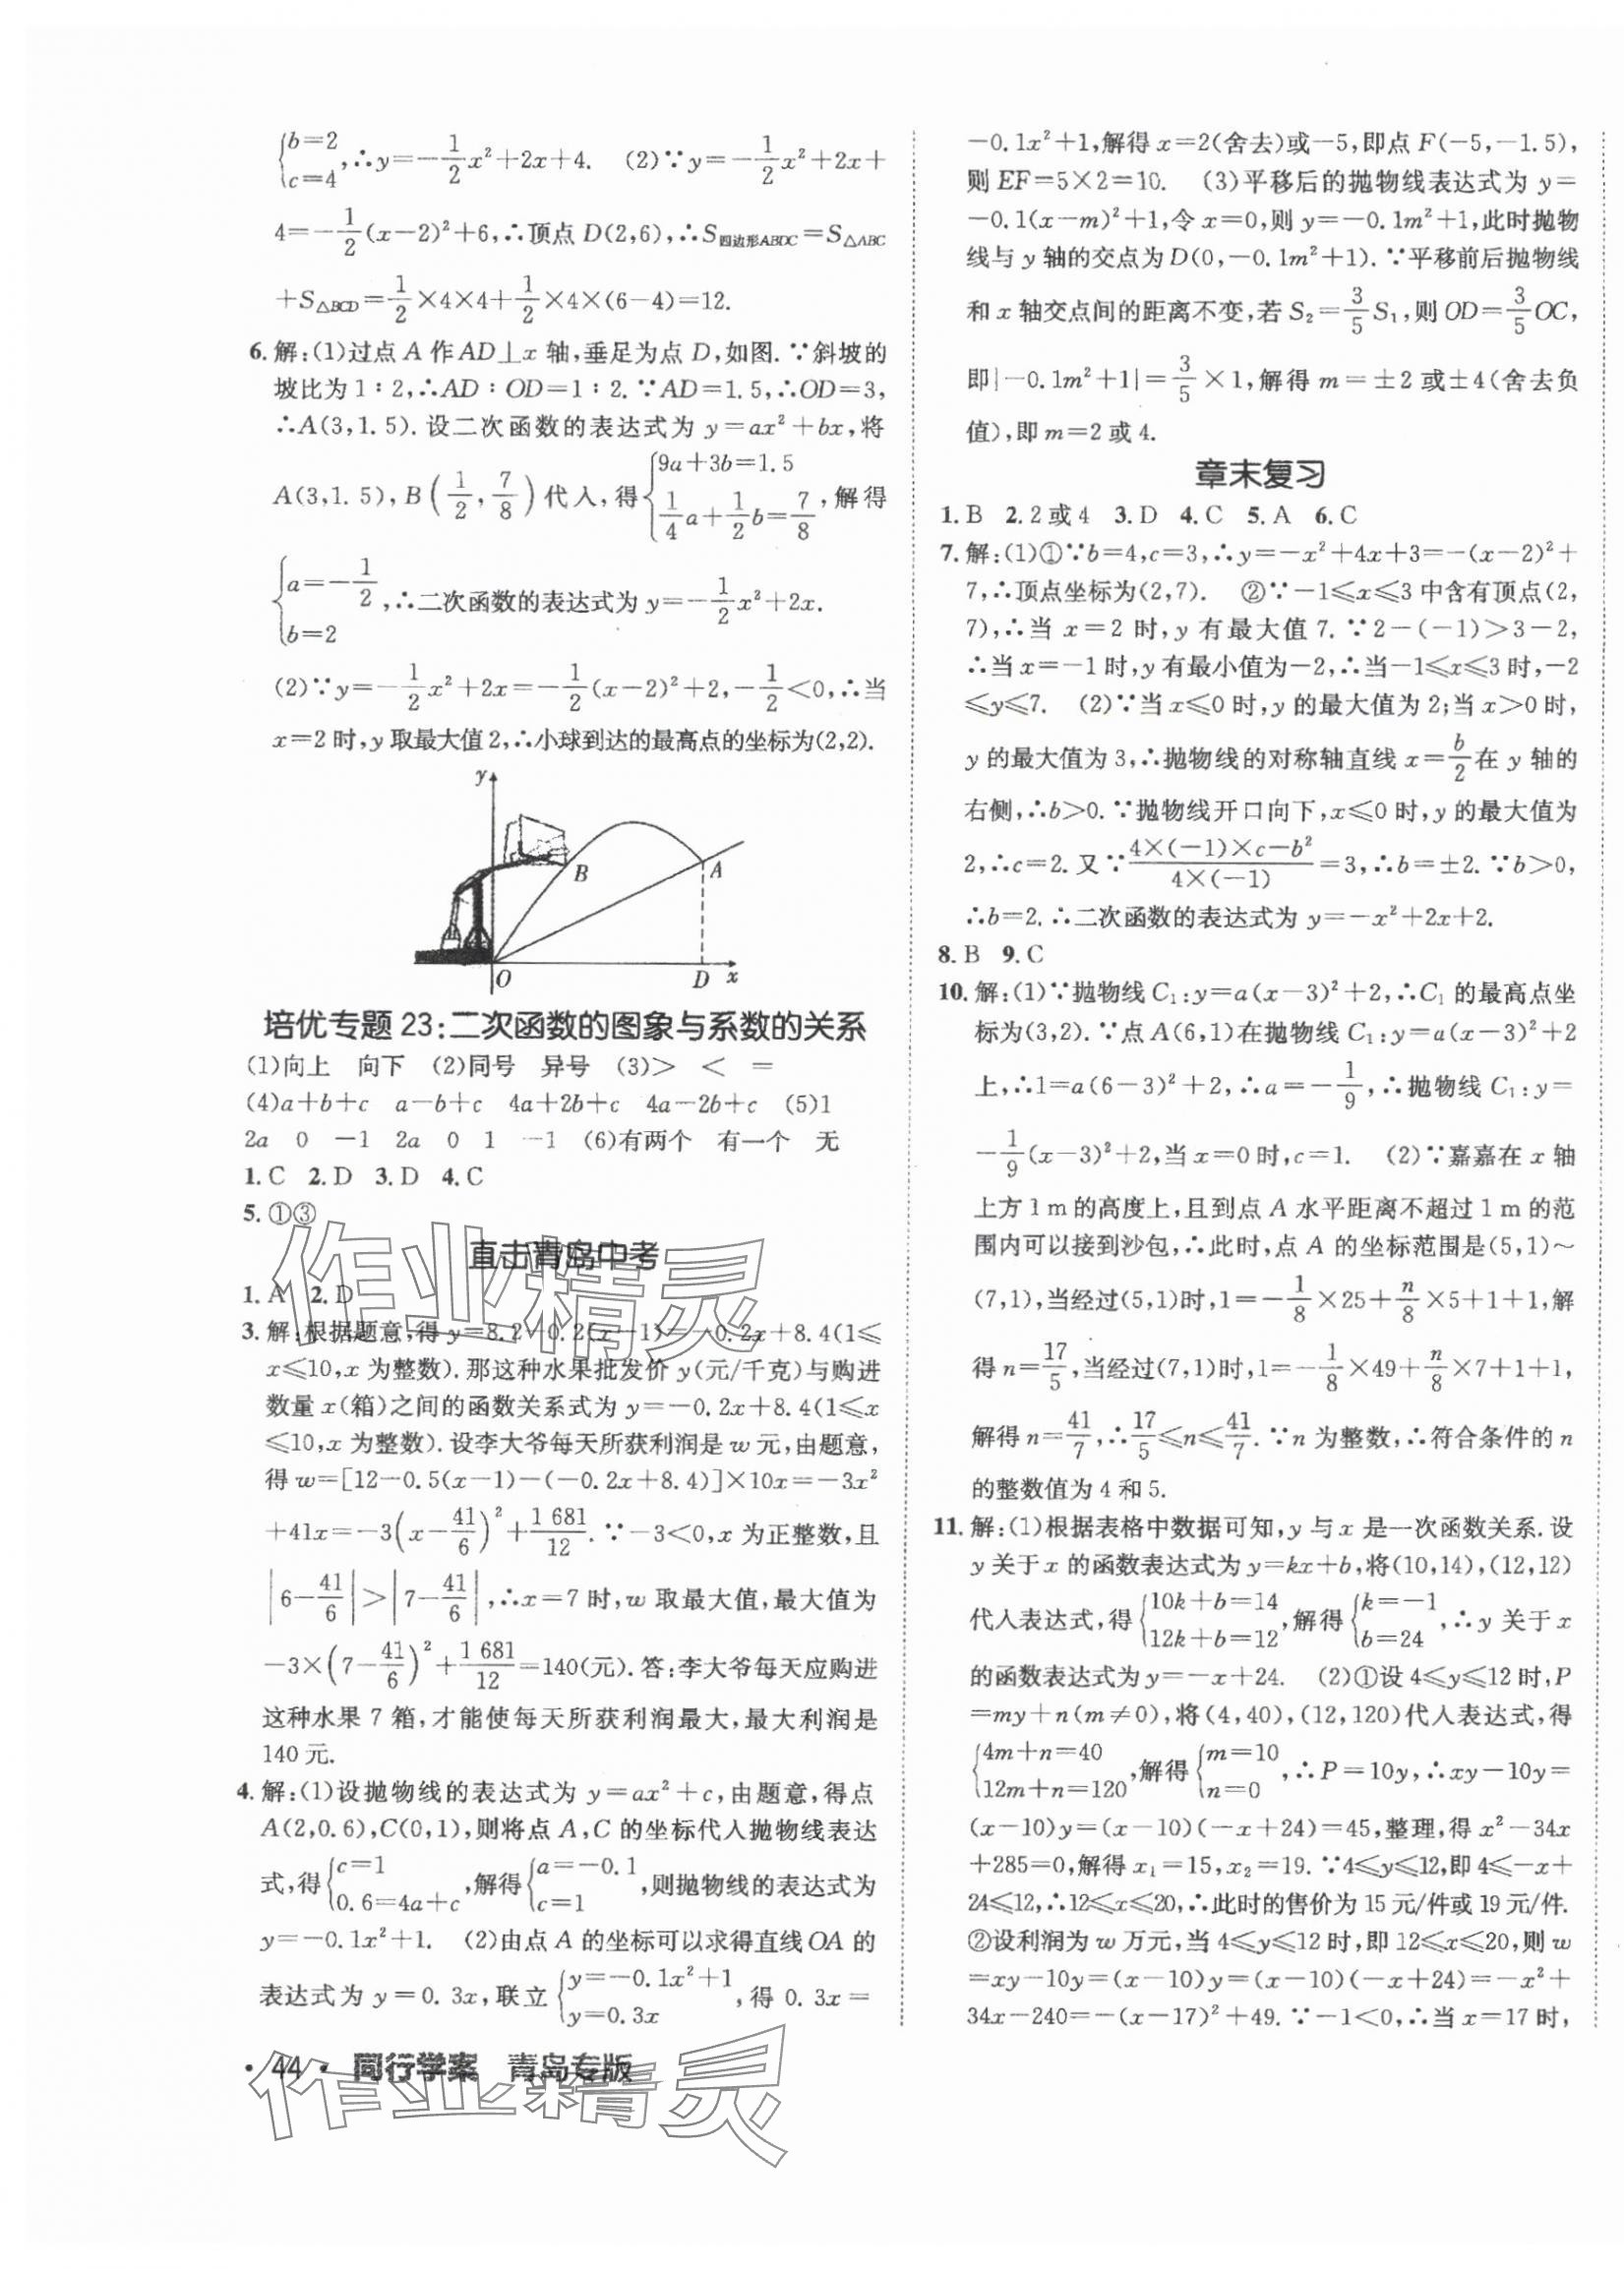 {b=2
c=4 ,∴y=-1/2x²+2x+4. (2)∵y=-1/2x²+2x+
4=-1/2(x-2)²+6,∴顶点 D(2,6),∴S四边形ABDC=S△ABC
+S△BCD=1/2×4×4+1/2×4×(6-4)=12.
6.解:(1)过点 A 作AD⊥x 轴,垂足为点 D,如图.∵斜坡的
坡比为1∶2,∴AD∶OD=1∶2.∵AD=1.5,∴OD=3,
∴A(3,1.5).设二次函数的表达式为 y=ax²+bx,将
A(3,1.5),B(1/2,7/8)代入,得{9a+3b=1.5
1/4a+1/2b=7/8 ,解得
{a=-1/2
b=2 ,∴二次函数的表达式为 y=-1/2x²+2x.
(2)∵y=-1/2x²+2x=-1/2(x-2)²+2,-1/2<0,∴当
x=2时,y取最大值2,∴小球到达的最高点的坐标为(2,2).
y
B
A
O
D
x
培优专题 23:二次函数的图象与系数的关系
(1)向上 向下 (2)同号 异号 (3)> < =
(4)a+b+c a-b+c 4a+2b+c 4a-2b+c (5)1
2a 0 -1 2a 0 1 -1 (6)有两个 有一个 无
1.C 2.D 3.D 4.C
5.①③
直击青岛中考
1.A 2.D
3.解:根据题意,得 y=8.2-0.2(x-1)=-0.2x+8.4(1≤
x≤10,x 为整数).那这种水果批发价 y(元/千克)与购进
数量 x(箱)之间的函数关系式为 y=-0.2x+8.4(1≤x
≤10,x 为整数).设李大爷每天所获利润是 w 元,由题意,
得 w=[12-0.5(x-1)-(-0.2x+8.4)]×10x=-3x²
+41x=-3(x-41/6)²+1 681/12.∵-3<0,x 为正整数,且
|6-41/6|>|7-41/6|,∴x=7 时,w 取最大值,最大值为
-3×(7-41/6)²+1 681/12=140(元).答:李大爷每天应购进
这种水果 7 箱,才能使每天所获利润最大,最大利润是
140 元.
4.解:(1)设抛物线的表达式为 y=ax²+c,由题意,得点
A(2,0.6),C(0,1),则将点 A,C 的坐标代入抛物线表达
式,得{c=1
0.6=4a+c ,解得{a=-0.1
c=1 ,则抛物线的表达式为
y=-0.1x²+1. (2)由点 A 的坐标可以求得直线 OA 的
表达式为 y=0.3x,联立{y=-0.1x²+1
y=0.3x ,得 0.3x=
-0.1x²+1,解得 x=2(舍去)或-5,即点 F(-5,-1.5),
则 EF=5×2=10. (3)平移后的抛物线表达式为 y=
-0.1(x-m)²+1,令 x=0,则 y=-0.1m²+1,此时抛物
线与 y 轴的交点为 D(0,-0.1m²+1).∵平移前后抛物线
和 x 轴交点间的距离不变,若 S₂=3/5S₁,则 OD=3/5OC,
即|-0.1m²+1|=3/5×1,解得 m=±2 或±4(舍去负
值),即 m=2 或 4.
章末复习
1.B 2.2或4 3.D 4.C 5.A 6.C
7.解:(1)①∵b=4,c=3,∴y=-x²+4x+3=-(x-2)²+
7,∴顶点坐标为(2,7). ②∵-1≤x≤3中含有顶点(2,
7),∴当 x=2 时,y 有最大值 7.∵2-(-1)>3-2,
∴当 x=-1 时,y 有最小值为-2,∴当-1≤x≤3 时,-2
≤y≤7. (2)∵当 x≤0 时,y 的最大值为 2;当 x>0 时,
y 的最大值为 3,∴抛物线的对称轴直线 x=b/2在 y 轴的
右侧,∴b>0.∵抛物线开口向下,x≤0 时,y 的最大值为
2,∴c=2.又∵4×(-1)×c-b²/4×(-1)=3,∴b=±2.∵b>0,
∴b=2.∴二次函数的表达式为 y=-x²+2x+2.
8.B 9.C
10.解:(1)∵抛物线 C₁:y=a(x-3)²+2,∴C₁ 的最高点坐
标为(3,2).∵点 A(6,1)在抛物线 C₁:y=a(x-3)²+2
上,∴1=a(6-3)²+2,∴a=-1/9,∴抛物线 C₁:y=
-1/9(x-3)²+2,当 x=0时,c=1. (2)∵嘉嘉在 x 轴
上方 1 m 的高度上,且到点 A 水平距离不超过 1 m 的范
围内可以接到沙包,∴此时,点 A 的坐标范围是(5,1)~
(7,1),当经过(5,1)时,1=-1/8×25+n/8×5+1+1,解
得 n=17/5,当经过(7,1)时,1=-1/8×49+n/8×7+1+1,
解得 n=41/7,∴17/5≤n≤41/7.∵n 为整数,∴符合条件的 n
的整数值为 4 和 5.
11.解:(1)根据表格中数据可知,y 与 x 是一次函数关系.设
y 关于 x 的函数表达式为 y=kx+b,将(10,14),(12,12)
代入表达式,得{10k+b=14
12k+b=12 ,解得{k=-1
b=24 ,∴y 关于 x
的函数表达式为 y=-x+24. (2)①设 4≤y≤12 时,P
=my+n(m≠0),将(4,40),(12,120)代入表达式,得
{4m+n=40
12m+n=120 ,解得{m=10
n=0 ,∴P=10y,∴xy-10y=
(x-10)y=(x-10)(-x+24)=45,整理,得 x²-34x
+285=0,解得 x₁=15,x₂=19.∵4≤y≤12,即 4≤-x+
24≤12,∴12≤x≤20,∴此时的售价为 15 元/件或 19 元/件.
②设利润为 w 万元,当 4≤y≤12 时,即 12≤x≤20,则 w
=xy-10y=(x-10)y=(x-10)(-x+24)=-x²+
34x-240=-(x-17)²+49.∵-1<0,∴当 x=17 时,
• 44 • 同行学案 青岛专版
作业精灵
作业精灵